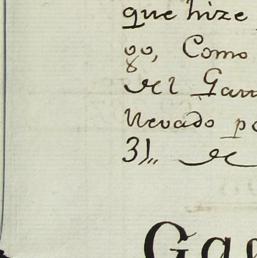 que hize
go, Como
del Gar
Nevado p
31,, de
Ga